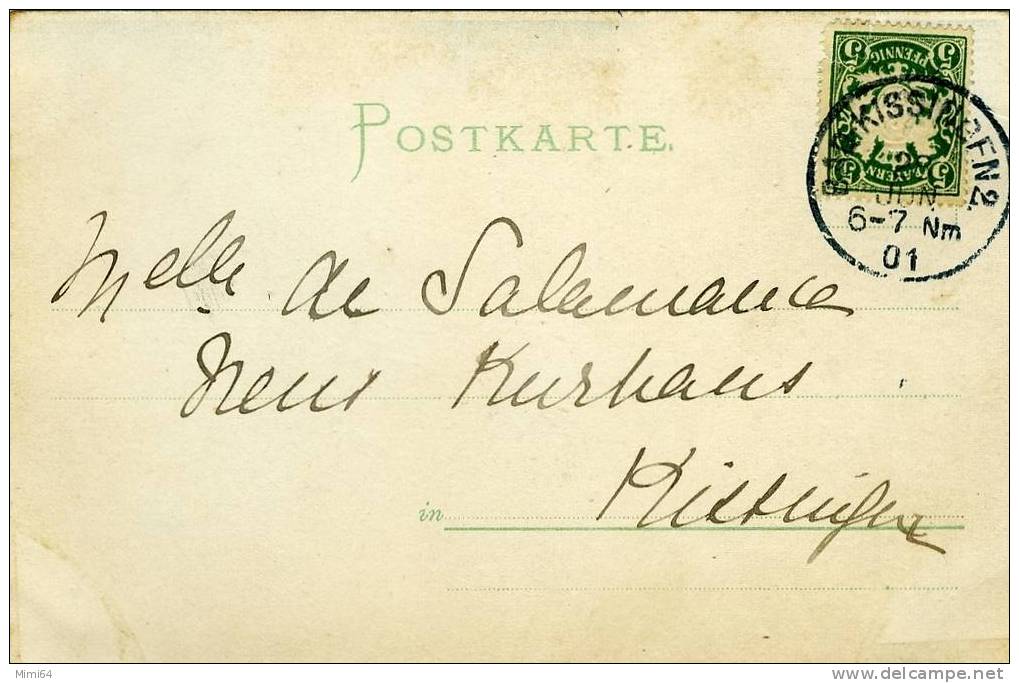 POSTKARTE.
5 5
PFENNIG
BAYERN
5 5
BAD KISSINGEN 2
JUN
6-7 Nm
01
Melle de Salamanca
Neues Kurhaus
in Kissingen
Mimi64
www.delcampe.net